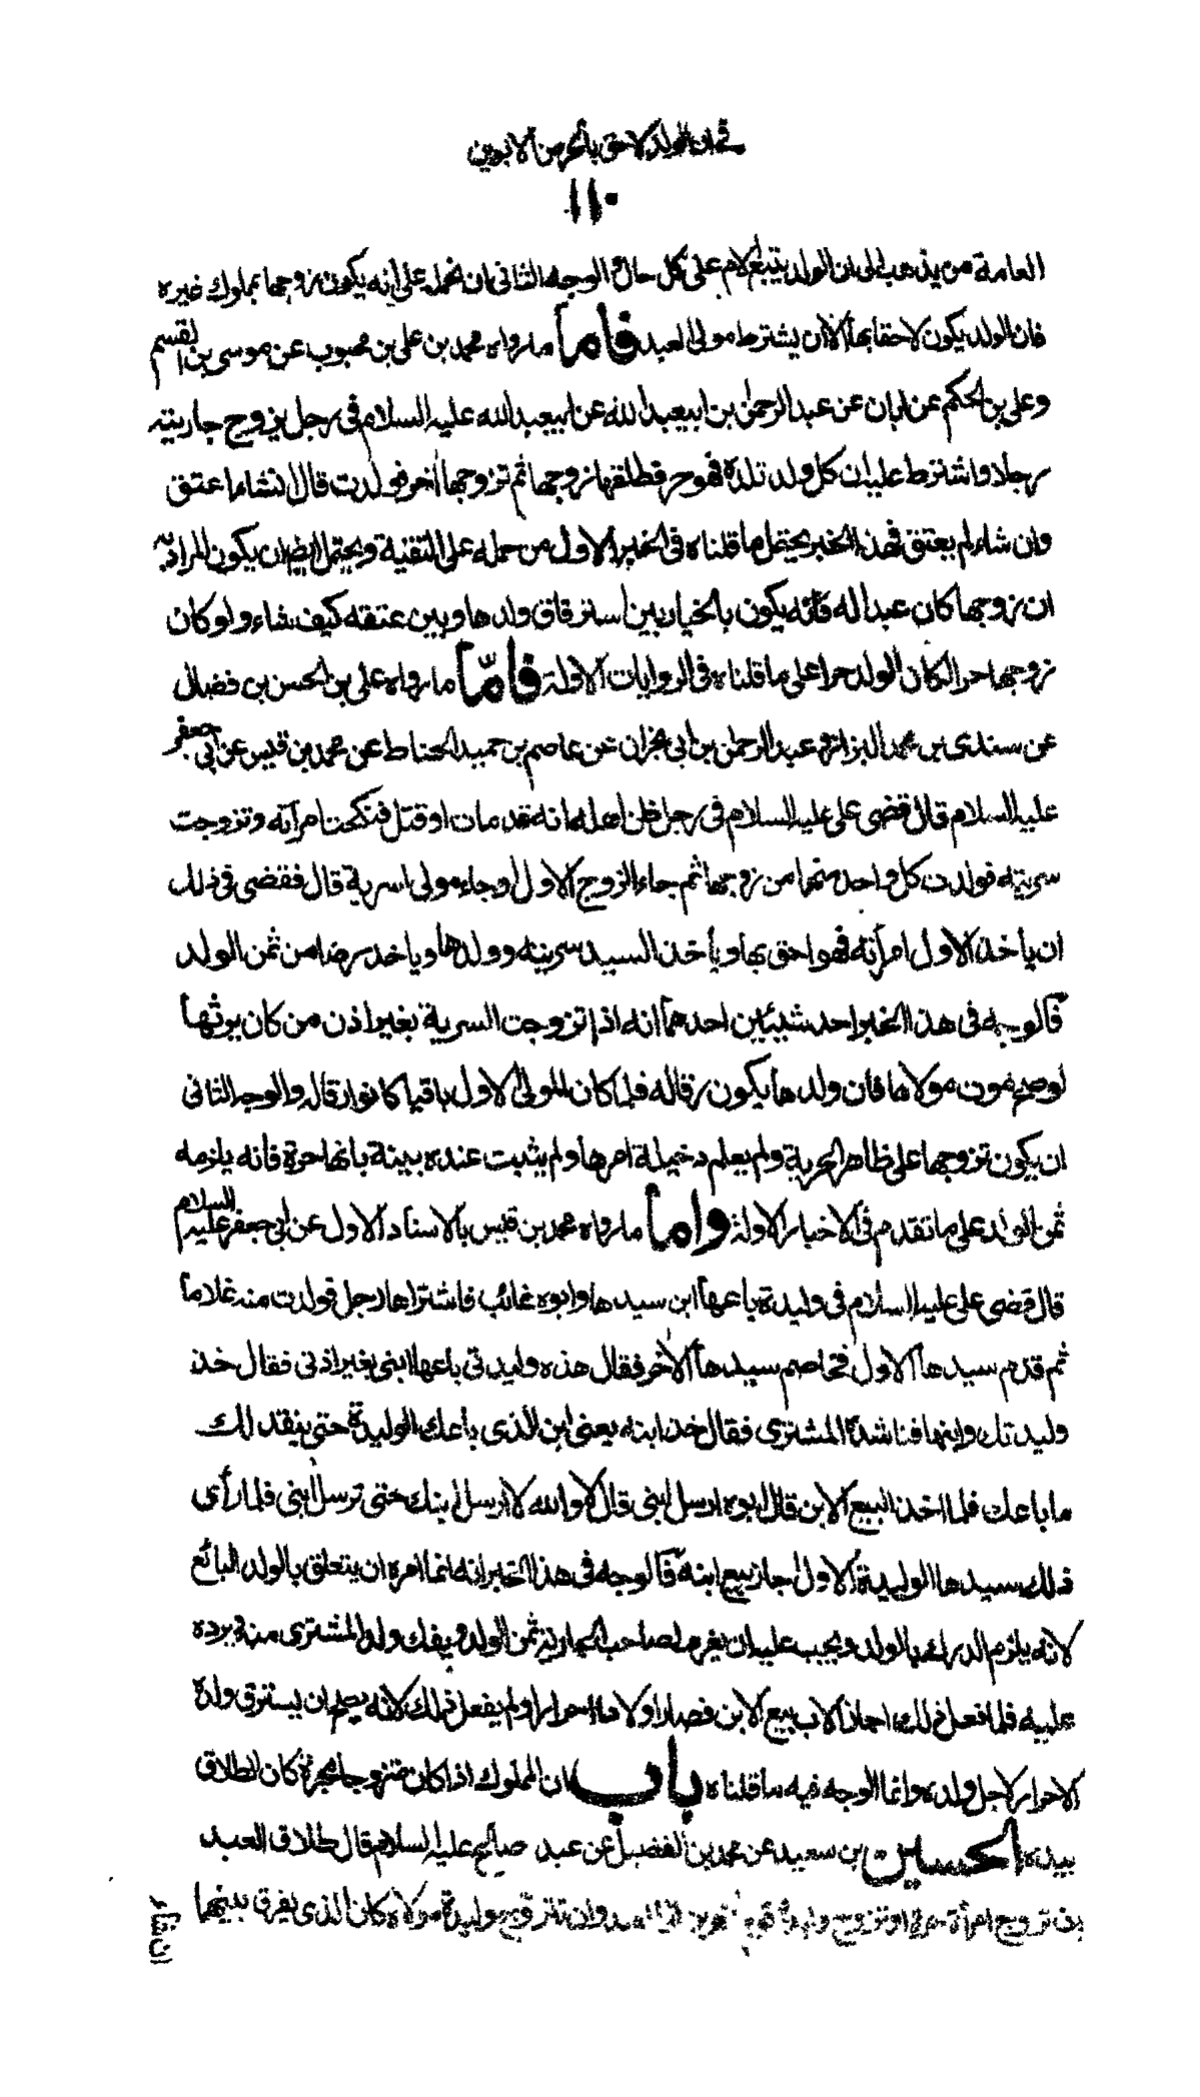 في ان الولد لاحق بالحر من الابوين
١١٠
العامة من يذهب الى ان الولد يتبع الام على كل حال و الوجه الثاني ان نحمله على انه يكون زوجها بمملوك غيره
فان الولد يكون لاحقا بها الا ان يشترط مولى العبد فأما ما رواه محمد بن علي بن محبوب عن موسى بن القسم
وعلي بن الحكم عن ابان عن عبد الرحمن بن ابيعبد الله عن ابيعبد الله عليه السلام في رجل يزوج جاريته
رجلا واشترط عليه ان كل ولد تلده فهو حر فطلقها زوجها ثم تزوجها اخر فولدت قال ان شاء اعتق
وان شاء لم يعتق فهذا الخبر يحتمل ما قلناه في الخبر الاول من حمله على التقية ويحتمل ايضا ان يكون المراد به
ان زوجها كان عبدا له فانه يكون بالخيار بين استرقاق ولدها وبين عتقه كيف شاء ولو كان
زوجها حرا لكان الولد حرا على ما قلناه في الروايات الاولة فامّا ما رواه علي بن الحسن بن فضال
عن سندي بن محمد البزاز و عبد الرحمن بن ابي نجران عن عاصم بن حميد الحناط عن محمد بن قيس عن ابي جعفر
عليه السلام قال قضى علي عليه السلام في رجل ظن اهله انه قد مات او قتل فنكحت امرأته وتزوجت
سريته فولدت كل واحد منهما من زوجها ثم جاء الزوج الاول وجاء مولى السرية قال فقضى في ذلك
ان ياخذ الاول امرأته فهو احق بها و يأخذ السيد سريته وولدها وياخذ رضا من ثمن الولد
فالوجه في هذا الخبر احد شيئين احدهما انه اذا تزوجت السرية بغير اذن من كان يرثها
لو صح موت مولاها فان ولدها يكون رقا له فلما كان المولى الاول باقيا كانوا رقا له والوجه الثاني
ان يكون تزوجها على ظاهر الحرية ولم يعلم دخيلة امرها ولم يثبت عنده بينة بانها حرة فانه يلزمه
ثمن الولد على ما تقدم في الاخبار الاولة واما ما رواه محمد بن قيس بالاسناد الاول عن ابي جعفر عليه السلام
قال قضى علي عليه السلام في وليدة باعها ابن سيدها وابوه غائب فاشتراها رجل فولدت منه غلاما
ثم قدم سيدها الاول فخاصم سيدها الاخر فقال هذه وليدتي باعها ابني بغير اذني فقال خذ
وليدتك وابنها فناشده المشتري فقال خذ ابنه يعني ابن الذي باعك الوليدة حتى ينقد لك
ما باعك فلما اخذ البيع الابن قال ابوه ارسل ابني قال لا والله لا ارسل ابنك حتى ترسل ابني فلما رأى
ذلك سيدها الوليدة الاول اجاز بيع ابنه فالوجه في هذا الخبر انه انما امره ان يتعلق بالولد البائع
لانه يلزم الدرك بالولد و يجب عليه ان يغرم لصاحب الجارية ثمن الولد و يفك ولد المشتري منه و يرده
عليه فلما فعل ذلك اجاز الاب بيع الابن فصاروا اولادا احرارا ولم يفعل ذلك لانه يصح ان يسترق ولده
الاحرار لاجل ولده وانما الوجه فيه ما قلناه باب ان المملوك اذا كان متزوجا بحرة كان الطلاق
بيده الحسين بن سعيد عن محمد بن الفضيل عن عبد صالح عليه السلام قال طلاق العبد
ان تزوج امرأة حرة او تزوج وليدة قوم آخرين الى العبد وان تزوج وليدة مولاه كان الذي يفرق بينهما
ان شاء